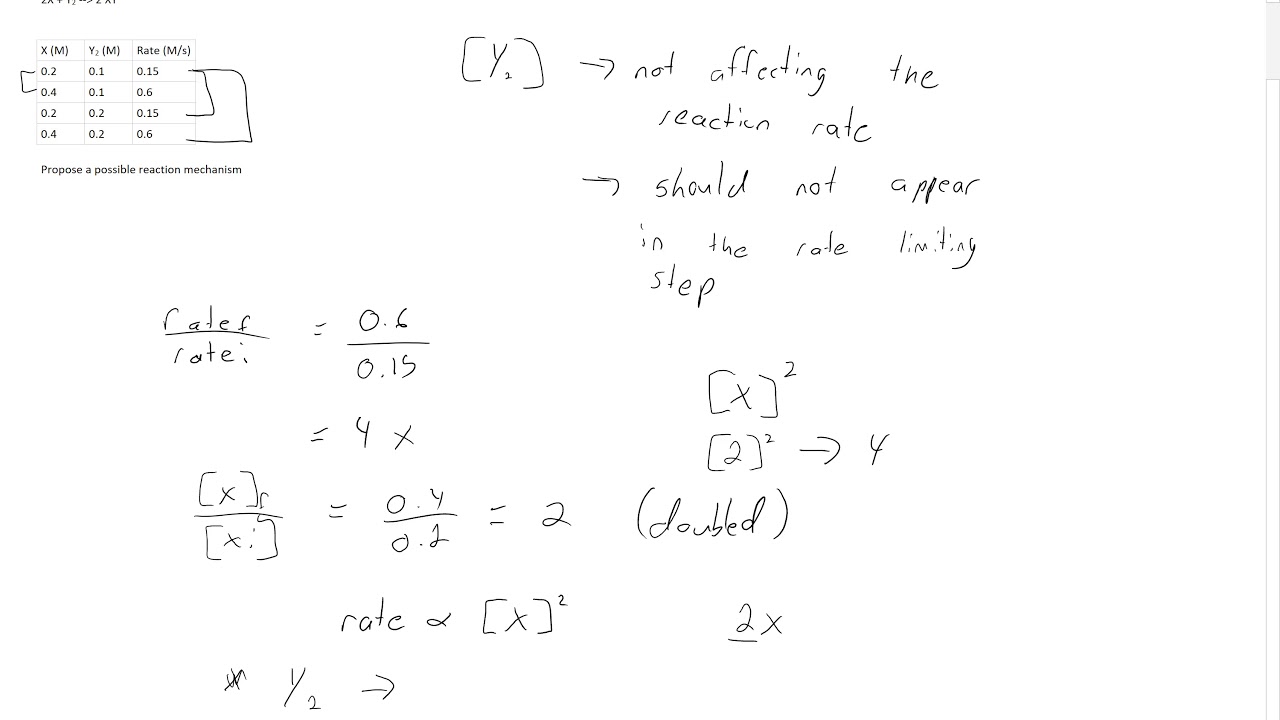 2X + Y₂ --> 2 XY
X (M) Y₂ (M) Rate (M/s)
0.2 0.1 0.15
0.4 0.1 0.6
0.2 0.2 0.15
0.4 0.2 0.6
Propose a possible reaction mechanism
[Y₂] → not affecting the
reaction rate
→ should not appear
in the rate limiting
step
rate f / rate i = 0.6 / 0.15
= 4 x
[x]f / [xi] = 0.4 / 0.2 = 2 (doubled)
[x]²
[2]² → 4
rate ∝ [x]² 2x
* Y₂ →